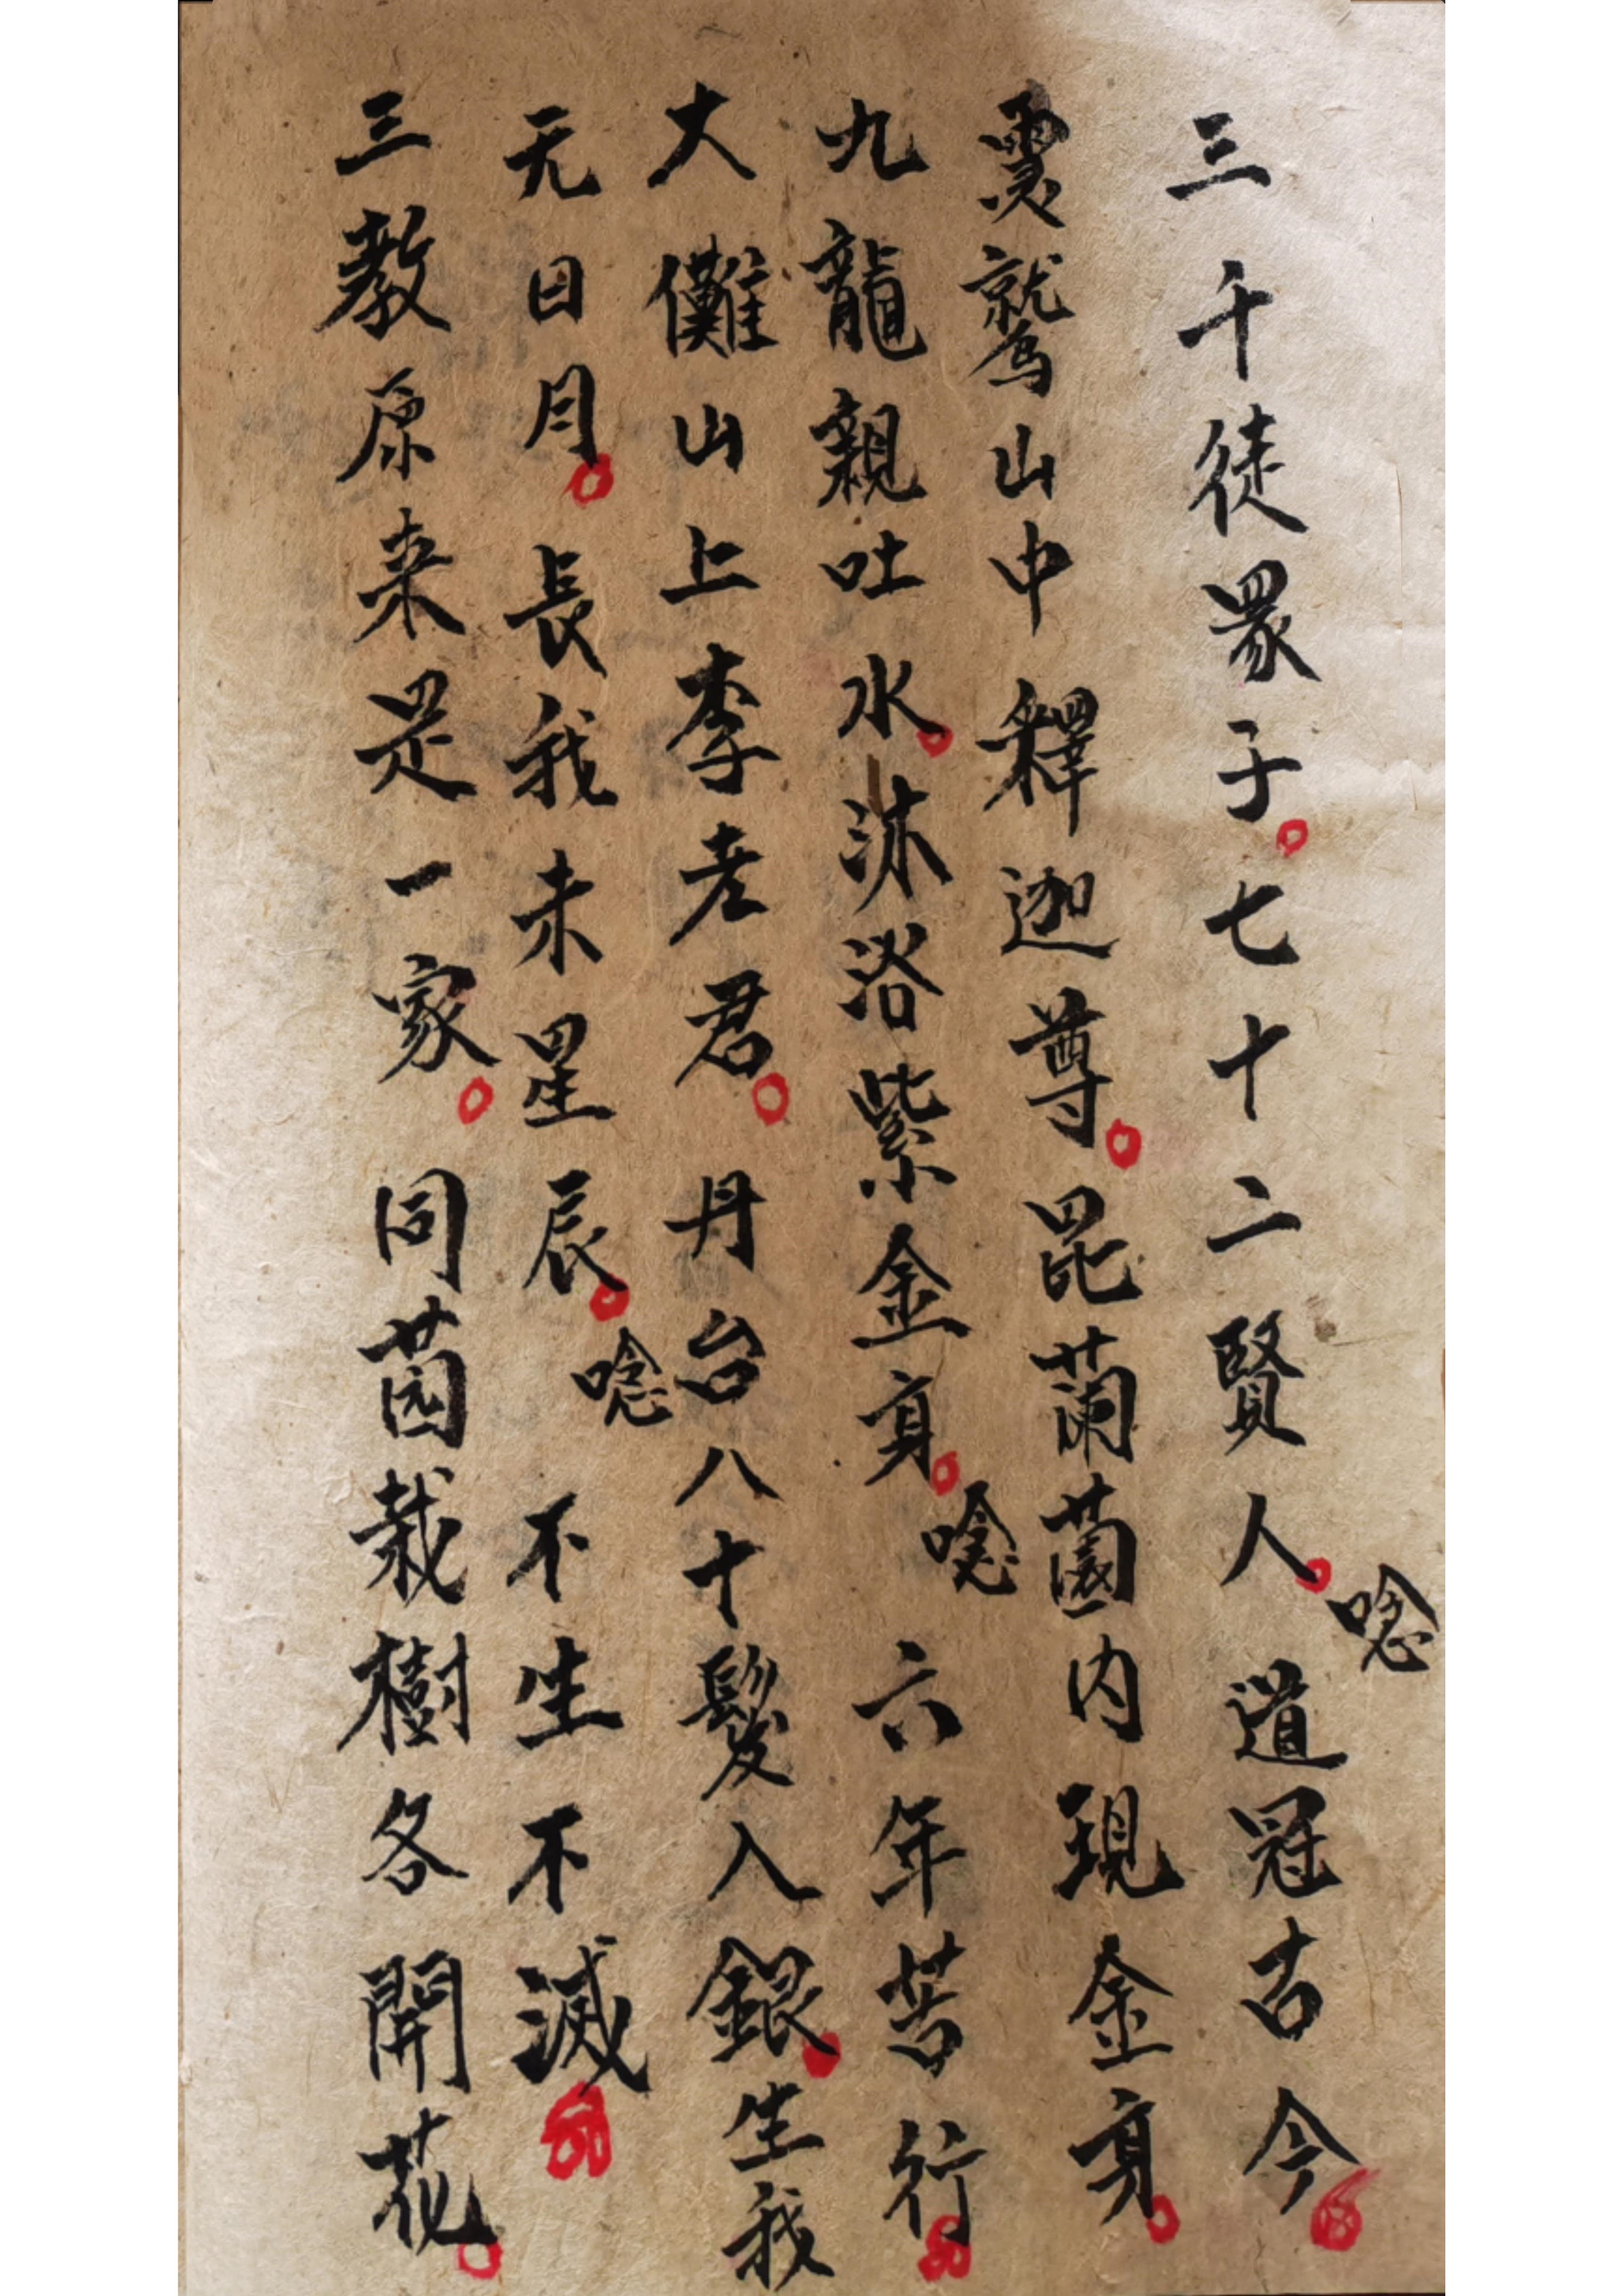 三千徒眾子。七十二賢人。唸道冠古今
霊鷲山中釋迦尊。毘蘭薗内現金身。
九龍親吐水。沐浴紫金身。唸六年苦行
大儺山上李老君。丹台八十鬓入銀。生我
无日月。長我未星辰。唸不生不滅
三教原来是一家。同薗栽樹各開花。